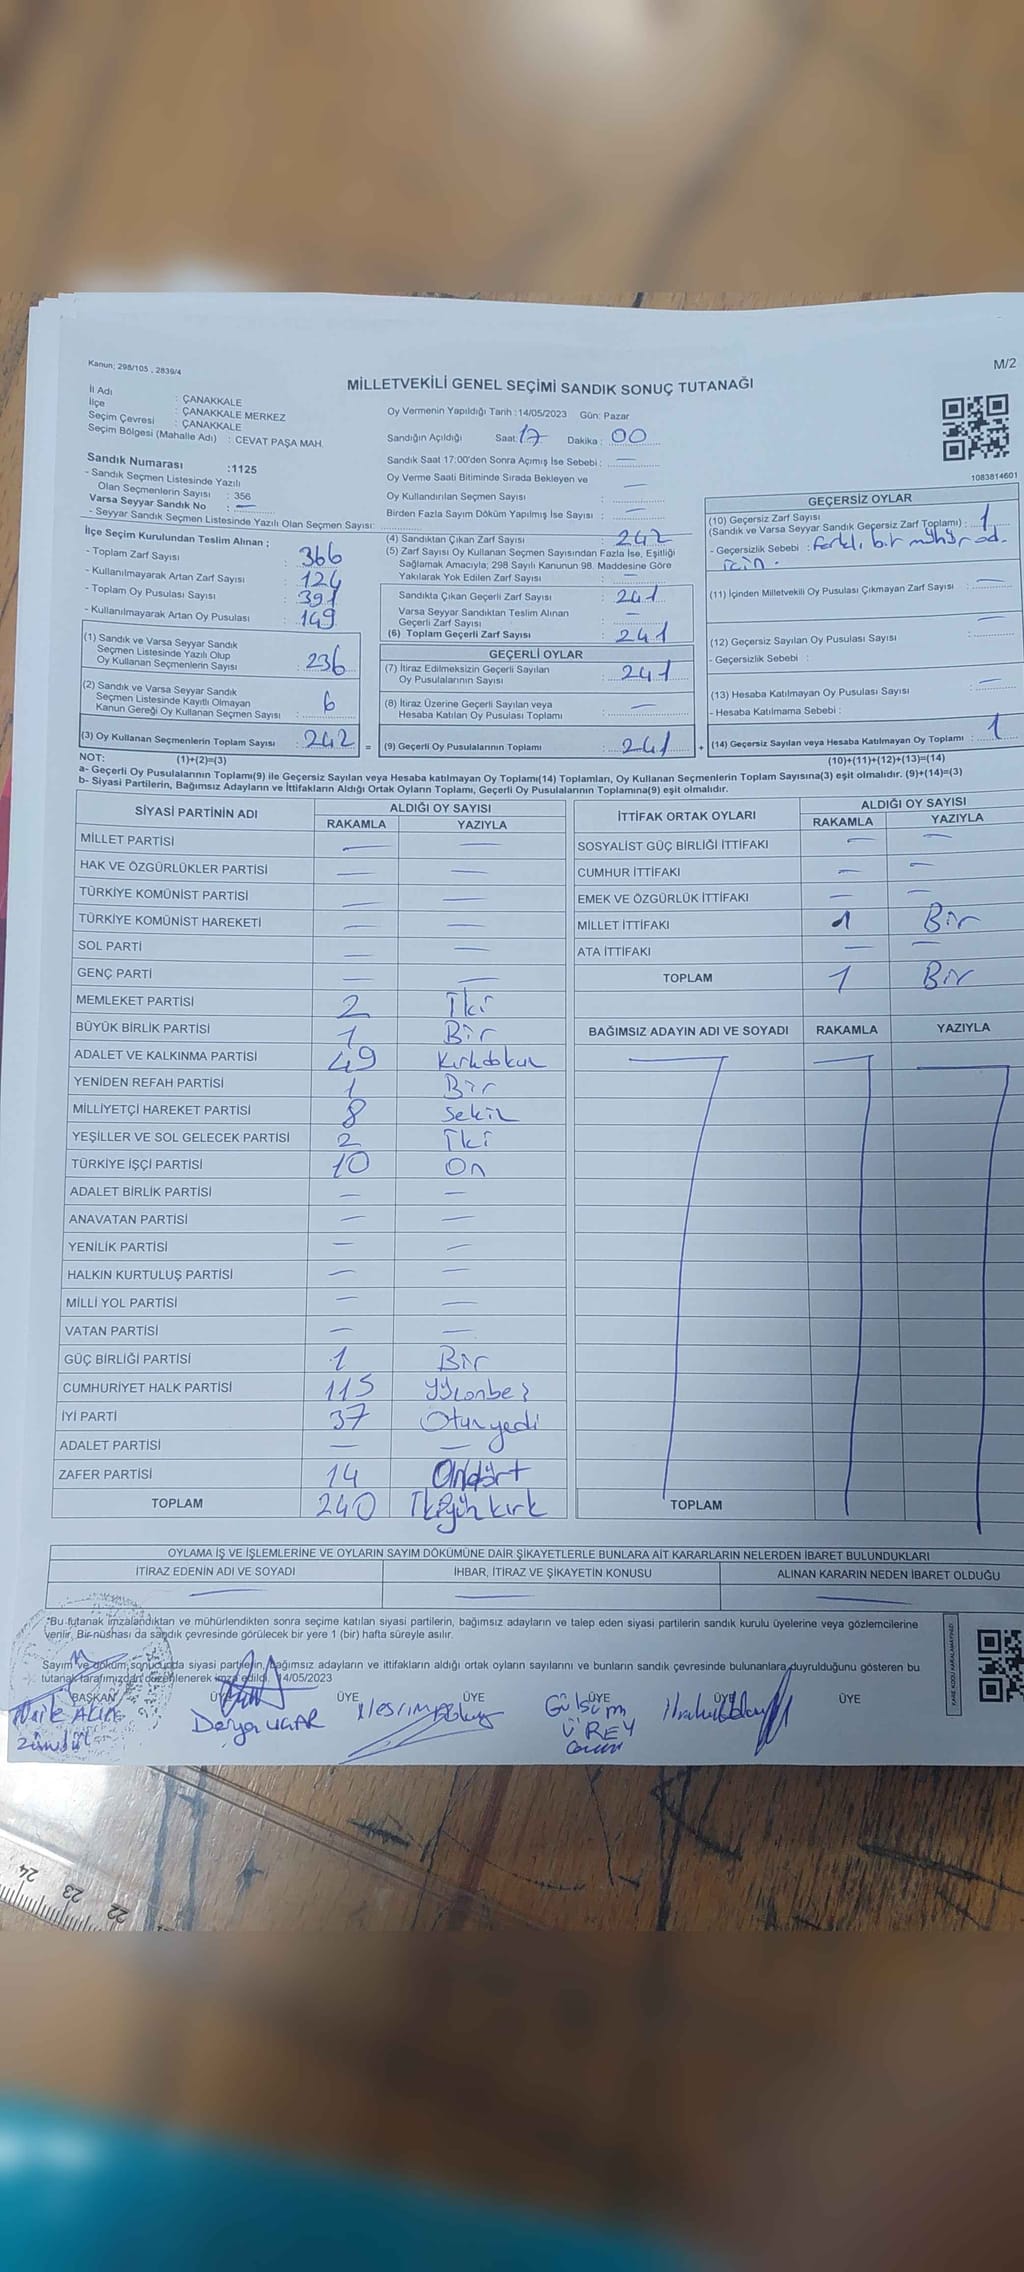 Kanun; 298/105 , 2839/4
M/2
MİLLETVEKİLİ GENEL SEÇİMİ SANDIK SONUÇ TUTANAĞI
İl Adı : ÇANAKKALE
İlçe : ÇANAKKALE MERKEZ
Seçim Çevresi : ÇANAKKALE
Seçim Bölgesi (Mahalle Adı) : CEVAT PAŞA MAH.
Sandık Numarası :1125
- Sandık Seçmen Listesinde Yazılı
Olan Seçmenlerin Sayısı : 356
Varsa Seyyar Sandık No : —
- Seyyar Sandık Seçmen Listesinde Yazılı Olan Seçmen Sayısı:
Oy Vermenin Yapıldığı Tarih :14/05/2023 Gün: Pazar
Sandığın Açıldığı Saat: 17 Dakika : 00
Sandık Saat 17:00'den Sonra Açımış İse Sebebi : —
Oy Verme Saati Bitiminde Sırada Bekleyen ve
Oy Kullandırılan Seçmen Sayısı : —
Birden Fazla Sayım Döküm Yapılmış İse Sayısı : —
1083814601
İlçe Seçim Kurulundan Teslim Alınan ;
- Toplam Zarf Sayısı : 366
- Kullanılmayarak Artan Zarf Sayısı : 124
- Toplam Oy Pusulası Sayısı : 391
- Kullanılmayarak Artan Oy Pusulası : 149
(1) Sandık ve Varsa Seyyar Sandık
Seçmen Listesinde Yazılı Olup
Oy Kullanan Seçmenlerin Sayısı : 236
(2) Sandık ve Varsa Seyyar Sandık
Seçmen Listesinde Kayıtlı Olmayan
Kanun Gereği Oy Kullanan Seçmen Sayısı : 6
(3) Oy Kullanan Seçmenlerin Toplam Sayısı : 242
(4) Sandıktan Çıkan Zarf Sayısı : 242
(5) Zarf Sayısı Oy Kullanan Seçmen Sayısından Fazla İse, Eşitliği
Sağlamak Amacıyla; 298 Sayılı Kanunun 98. Maddesine Göre
Yakılarak Yok Edilen Zarf Sayısı : —
Sandıkta Çıkan Geçerli Zarf Sayısı : 241
Varsa Seyyar Sandıktan Teslim Alınan
Geçerli Zarf Sayısı : —
(6) Toplam Geçerli Zarf Sayısı : 241
GEÇERLİ OYLAR
(7) İtiraz Edilmeksizin Geçerli Sayılan
Oy Pusulalarının Sayısı : 241
(8) İtiraz Üzerine Geçerli Sayılan veya
Hesaba Katılan Oy Pusulası Toplamı : —
= (9) Geçerli Oy Pusulalarının Toplamı : 241 +
GEÇERSİZ OYLAR
(10) Geçersiz Zarf Sayısı
(Sandık ve Varsa Seyyar Sandık Geçersiz Zarf Toplamı) : 1
- Geçersizlik Sebebi : farklı bir mühür
için.
(11) İçinden Milletvekili Oy Pusulası Çıkmayan Zarf Sayısı : —
(12) Geçersiz Sayılan Oy Pusulası Sayısı : —
- Geçersizlik Sebebi :
(13) Hesaba Katılmayan Oy Pusulası Sayısı : —
- Hesaba Katılmama Sebebi :
(14) Geçersiz Sayılan veya Hesaba Katılmayan Oy Toplamı : 1
NOT: (1)+(2)=(3)
(10)+(11)+(12)+(13)=(14)
a- Geçerli Oy Pusulalarının Toplamı(9) ile Geçersiz Sayılan veya Hesaba katılmayan Oy Toplamı(14) Toplamları, Oy Kullanan Seçmenlerin Toplam Sayısına(3) eşit olmalıdır. (9)+(14)=(3)
b- Siyasi Partilerin, Bağımsız Adayların ve İttifakların Aldığı Ortak Oyların Toplamı, Geçerli Oy Pusulalarının Toplamına(9) eşit olmalıdır.
SİYASİ PARTİNİN ADI ALDIĞI OY SAYISI
RAKAMLA YAZIYLA
MİLLET PARTİSİ — —
HAK VE ÖZGÜRLÜKLER PARTİSİ — —
TÜRKİYE KOMÜNİST PARTİSİ — —
TÜRKİYE KOMÜNİST HAREKETİ — —
SOL PARTİ — —
GENÇ PARTİ — —
MEMLEKET PARTİSİ 2 İki
BÜYÜK BİRLİK PARTİSİ 1 Bir
ADALET VE KALKINMA PARTİSİ 49 Kırkdokuz
YENİDEN REFAH PARTİSİ 1 Bir
MİLLİYETÇİ HAREKET PARTİSİ 8 Sekiz
YEŞİLLER VE SOL GELECEK PARTİSİ 2 İki
TÜRKİYE İŞÇİ PARTİSİ 10 On
ADALET BİRLİK PARTİSİ — —
ANAVATAN PARTİSİ — —
YENİLİK PARTİSİ — —
HALKIN KURTULUŞ PARTİSİ — —
MİLLİ YOL PARTİSİ — —
VATAN PARTİSİ — —
GÜÇ BİRLİĞİ PARTİSİ 1 Bir
CUMHURİYET HALK PARTİSİ 115 Yüzonbeş
İYİ PARTİ 37 Otuzyedi
ADALET PARTİSİ — —
ZAFER PARTİSİ 14 Ondört
TOPLAM 240 İkiyüzkırk
İTTİFAK ORTAK OYLARI ALDIĞI OY SAYISI
RAKAMLA YAZIYLA
SOSYALİST GÜÇ BİRLİĞİ İTTİFAKI — —
CUMHUR İTTİFAKI — —
EMEK VE ÖZGÜRLÜK İTTİFAKI — —
MİLLET İTTİFAKI 1 Bir
ATA İTTİFAKI — —
TOPLAM 1 Bir
BAĞIMSIZ ADAYIN ADI VE SOYADI RAKAMLA YAZIYLA
TOPLAM
OYLAMA İŞ VE İŞLEMLERİNE VE OYLARIN SAYIM DÖKÜMÜNE DAİR ŞİKAYETLERLE BUNLARA AİT KARARLARIN NELERDEN İBARET BULUNDUKLARI
İTİRAZ EDENİN ADI VE SOYADI İHBAR, İTİRAZ VE ŞİKAYETİN KONUSU ALINAN KARARIN NEDEN İBARET OLDUĞU
— — —
"Bu tutanak imzalandıktan ve mühürlendikten sonra seçime katılan siyasi partilerin, bağımsız adayların ve talep eden siyasi partilerin sandık kurulu üyelerine veya gözlemcilerine
verilir, Bir nüshası da sandık çevresinde görülecek bir yere 1 (bir) hafta süreyle asılır.
Sayım ve döküm sonucunda siyasi partilerin, bağımsız adayların ve ittifakların aldığı ortak oyların sayılarını ve bunların sandık çevresinde bulunanlara duyrulduğunu gösteren bu
tutanak tarafımızdan düzenlenerek imza edildi. 14/05/2023
BAŞKAN ÜYE ÜYE ÜYE ÜYE ÜYE ÜYE
Derya UÇAR
Gülsüm
ÜREY
24 23 22